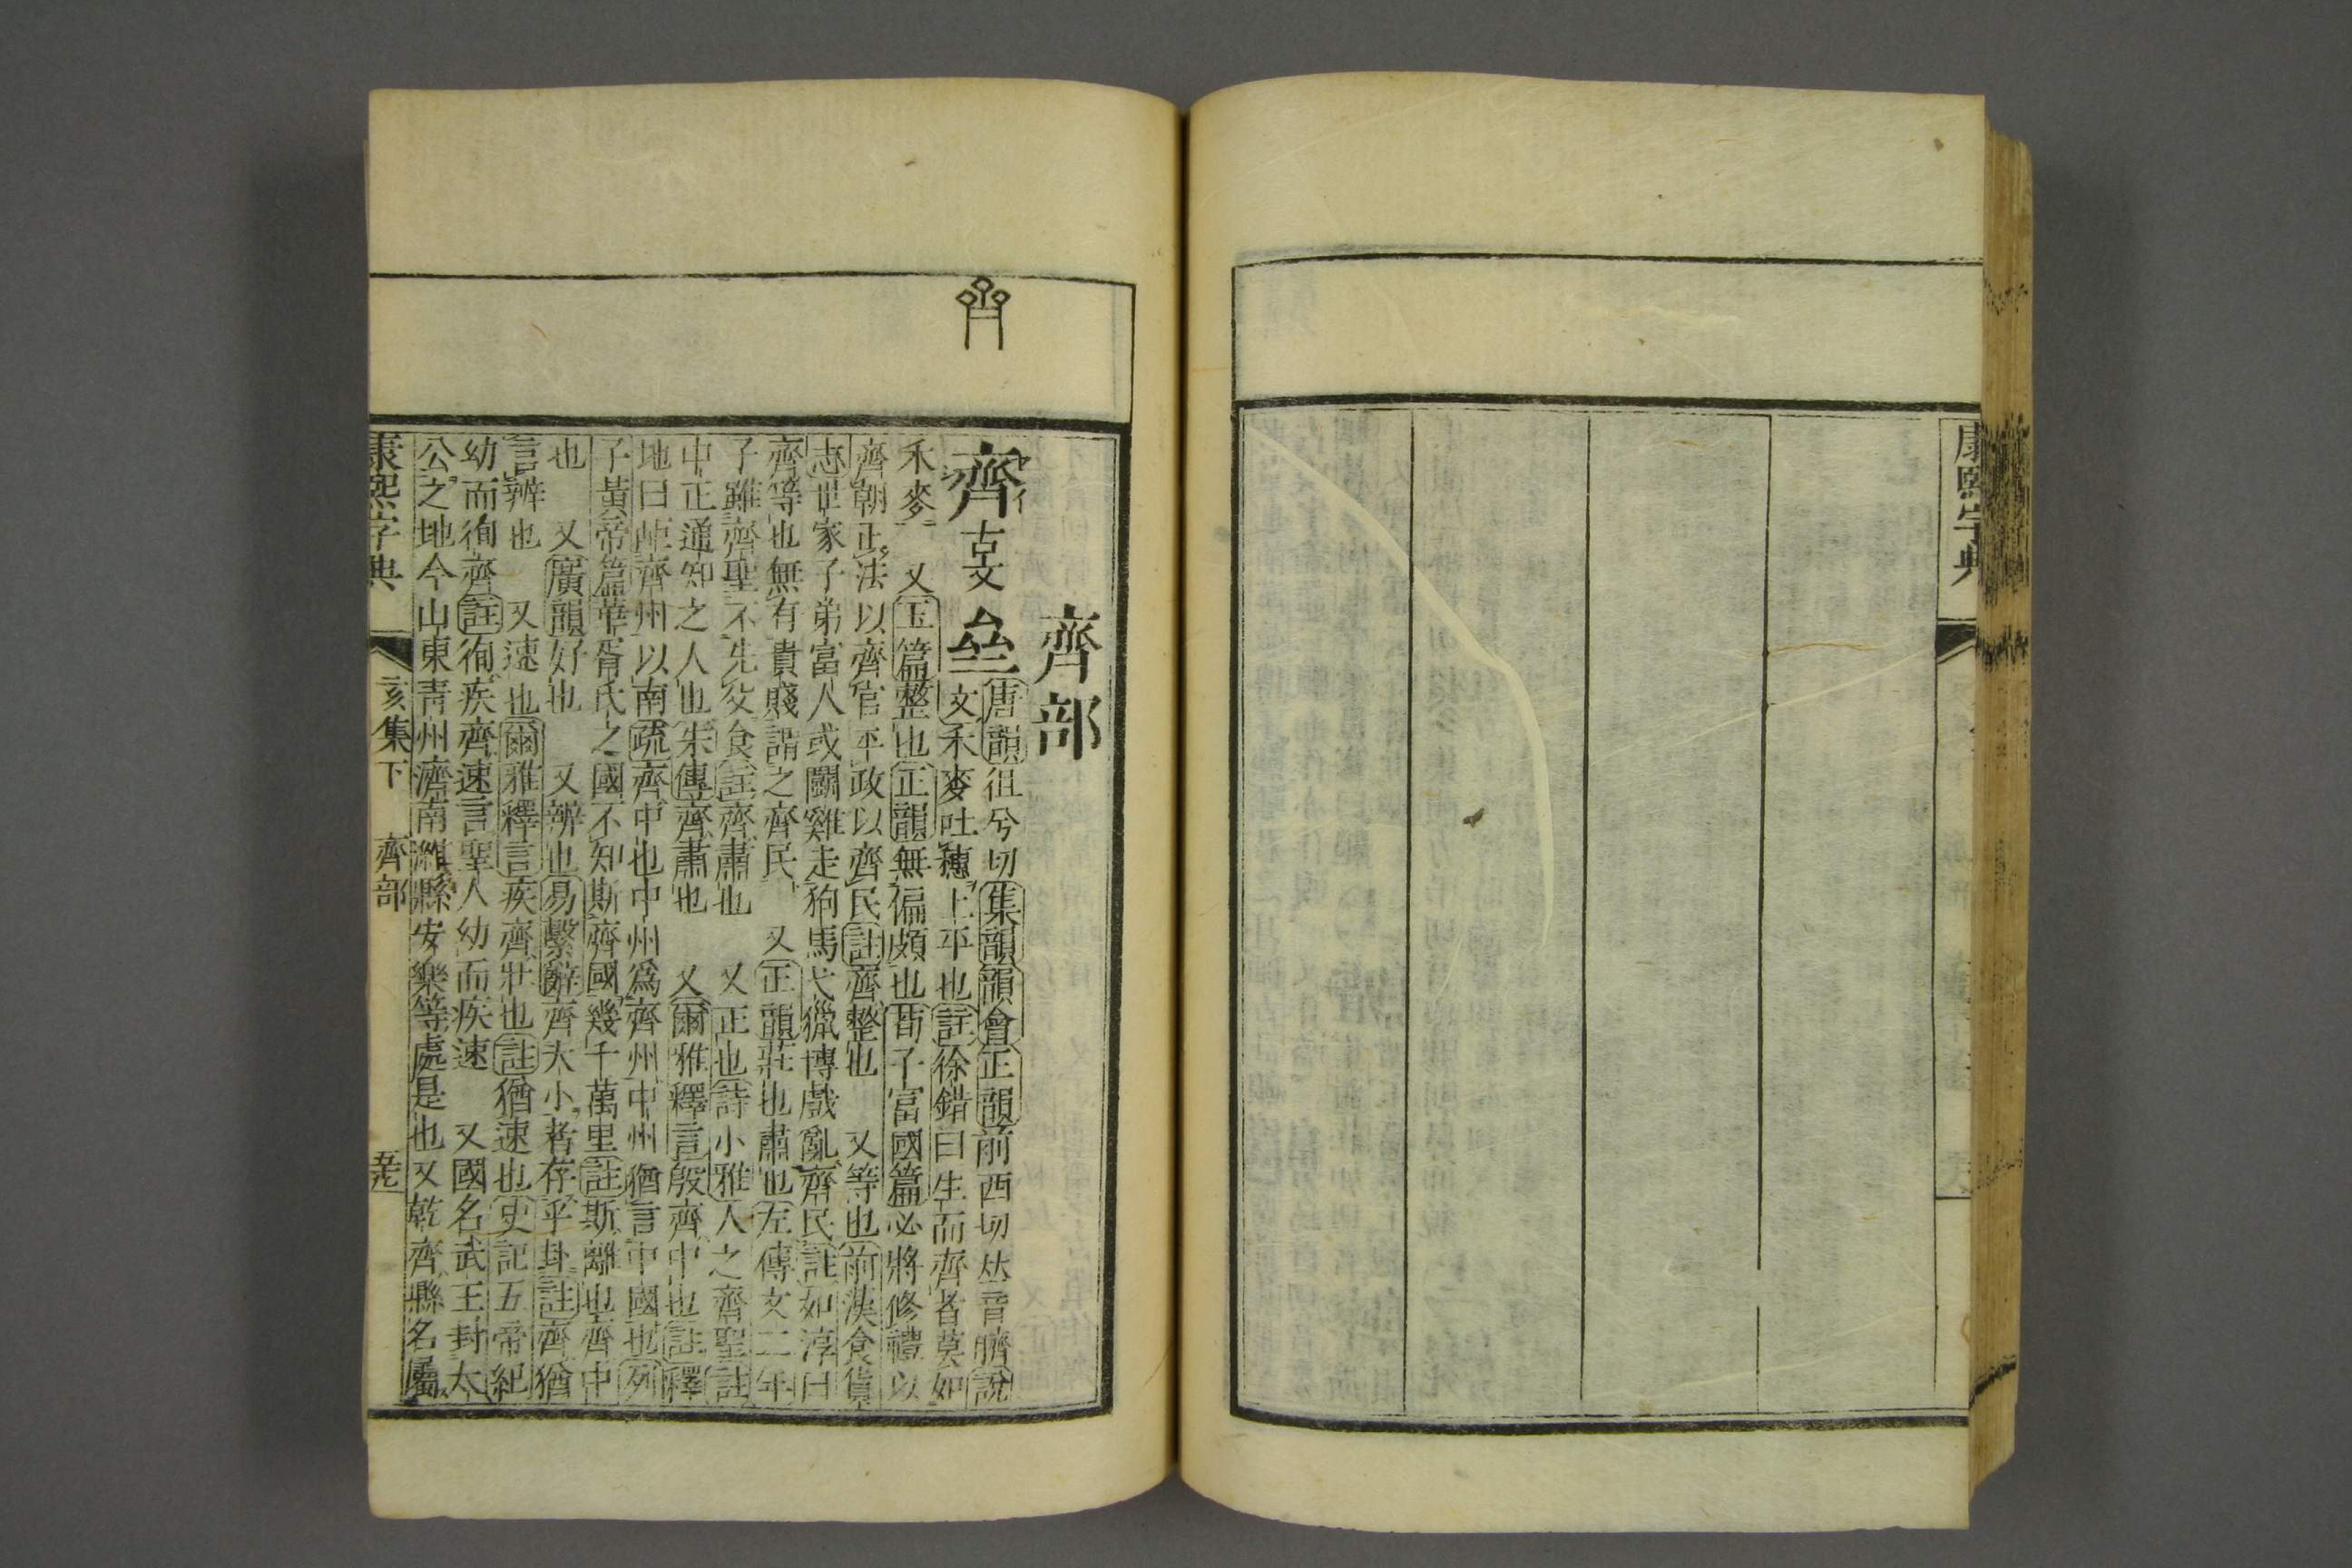 康熙字典
齊部
齊 古文 亝
唐韻徂兮切集韻韻會正韻前西切𠀤音臍說
文禾麥吐穗上平也註徐鍇曰生而齊者莫如
禾麥 又玉篇整也正韻無偏頗也荀子富國篇必將修禮以
齊朝正法以齊官平政以齊民註齊整也 又等也前漢食貨
志世家子弟富人或鬭雞走狗馬弋獵博戲亂齊民註如淳曰
齊等也無有貴賤謂之齊民 又正韻莊也肅也左傳文二年
子雖齊聖不先父食註齊肅也 又正也詩小雅人之齊聖註
中正通知之人也朱傳齊肅也 又爾雅釋言殷齊中也註釋
地曰岠齊州以南疏齊中也中州爲齊州中州猶言中國也列
子黃帝篇華胥氏之國不知斯齊國幾千萬里註斯離也齊中
也 又廣韻好也 又辨也易繫辭齊大小者存乎卦註齊猶
言辨也 又速也爾雅釋言疾齊壯也註猶速也史記五帝紀
幼而徇齊註徇疾齊速言聖人幼而疾速 又國名武王封太
公之地今山東靑州濟南濰縣安樂等處是也又乾齊縣名屬
康熙字典 亥集下 齊部